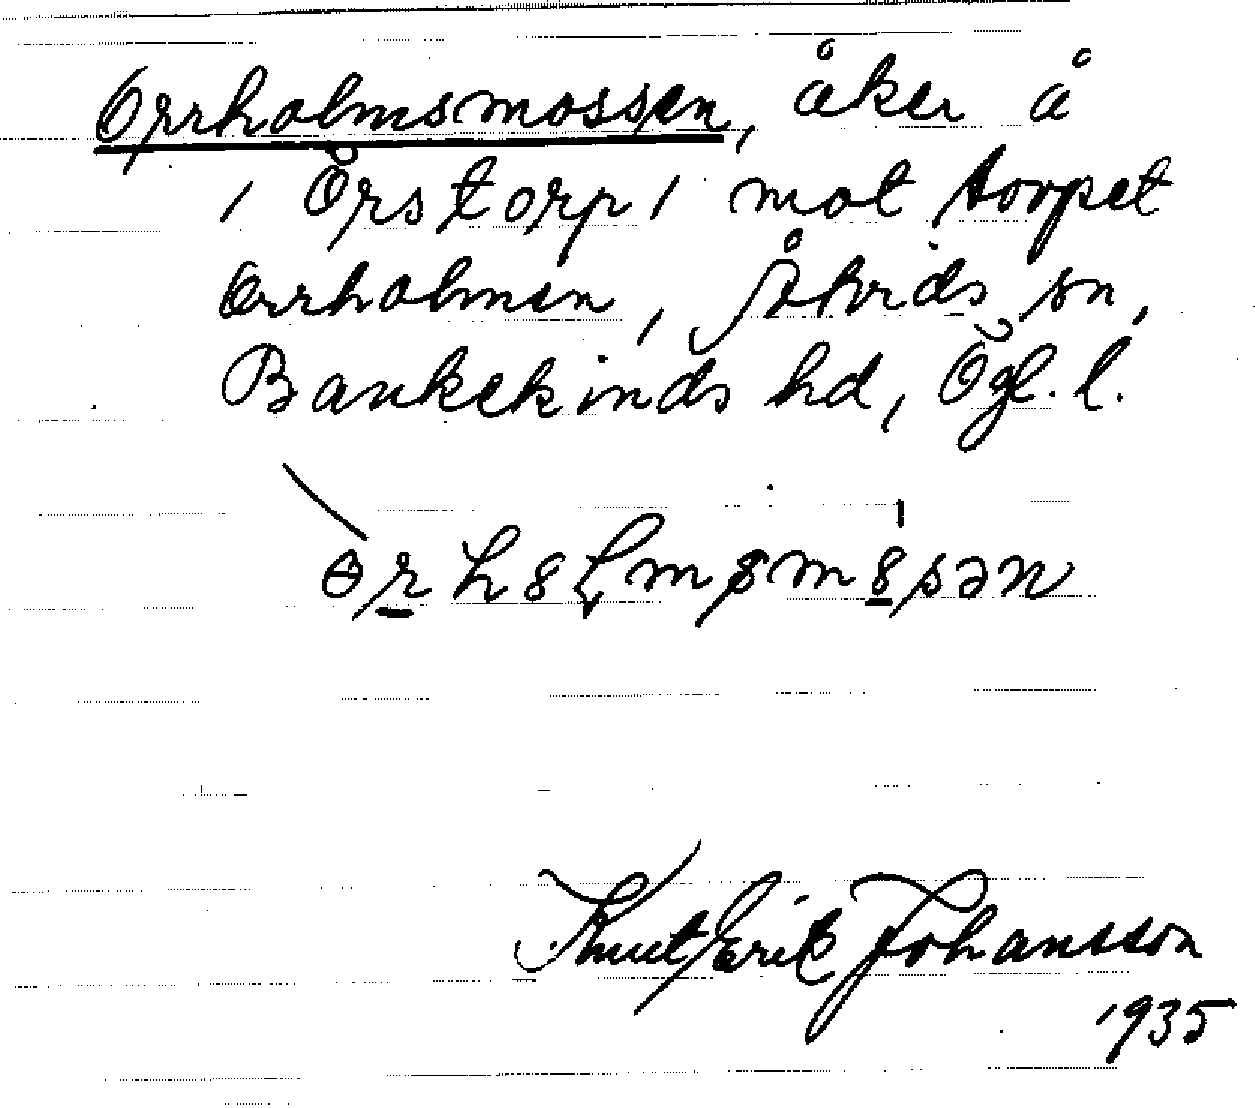 Orrholmsmossen, åker å
/ Örstorp / mot torpet
Orrholmen, Åtvids sn,
Bankekinds hd, Ögl. l.
Knut Erik Johansson
1935